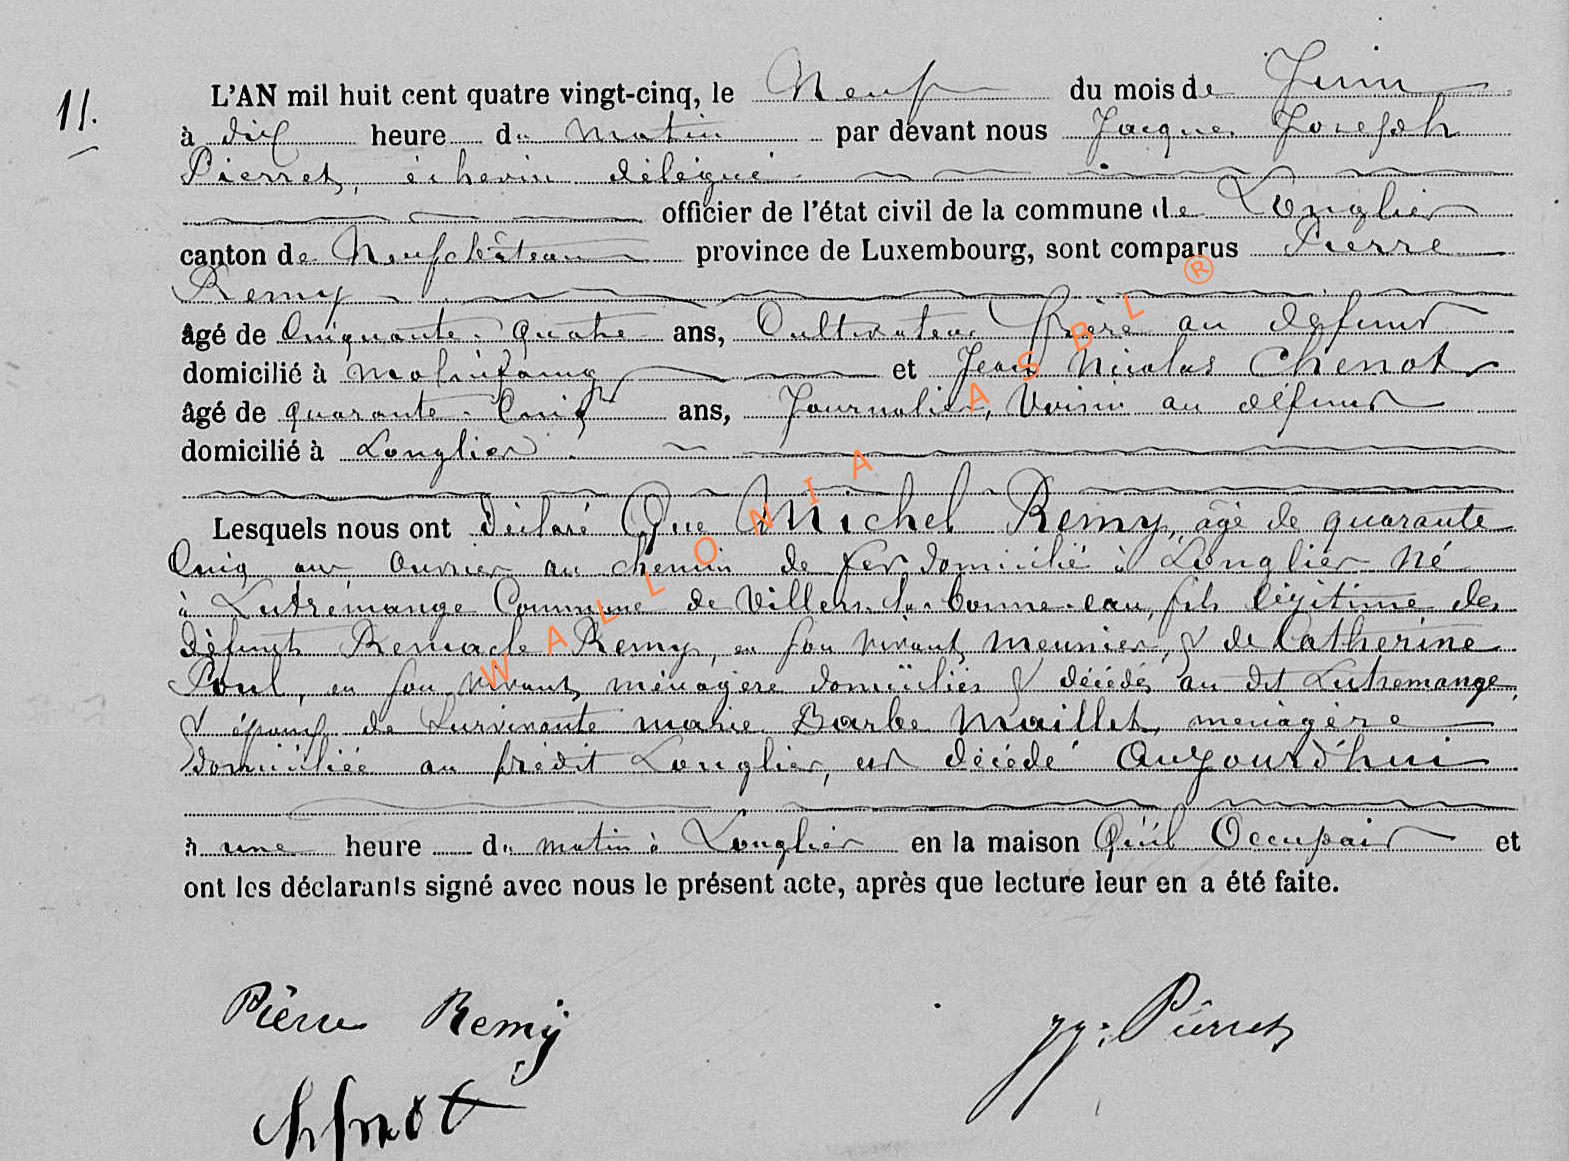 11.
L'AN mil huit cent quatre vingt-cinq, le Neuf du mois de Juin
à dix heure du matin par devant nous Jacques Joseph
Pierret, échevin délégué
officier de l'état civil de la commune de Longlier
canton de Neufchâteau province de Luxembourg, sont comparus Pierre
Remy
âgé de Cinquante-quatre ans, Cultivateur, frère au défunt
domicilié à Molinfaing et Jean Nicolas Chenot
âgé de quarante-Cinq ans, Journalier, Voisin au défunt
domicilié à Longlier
Lesquels nous ont déclaré Que Michel Remy, âgé de quarante
Cinq ans, Ouvrier au chemin de fer domicilié à Longlier né
à Lutremange Commune de Villers-la-bonne-eau, fils légitime des
défunts Remacle Remy, en son vivant, meunier, & de Catherine
Poul, en son vivant, ménagère domiciliés & décédés au dit Lutremange,
& époux de Survivante marie Barbe Maillet, ménagère
domiciliée au prédit Longlier, est décédé Aujourd'hui
à une heure du matin à Longlier en la maison Qu'il Occupait et
ont les déclarants signé avec nous le présent acte, après que lecture leur en a été faite.
Pierre Remÿ
JJ: Pierret
Chenot
WALLONIA ASBL ®